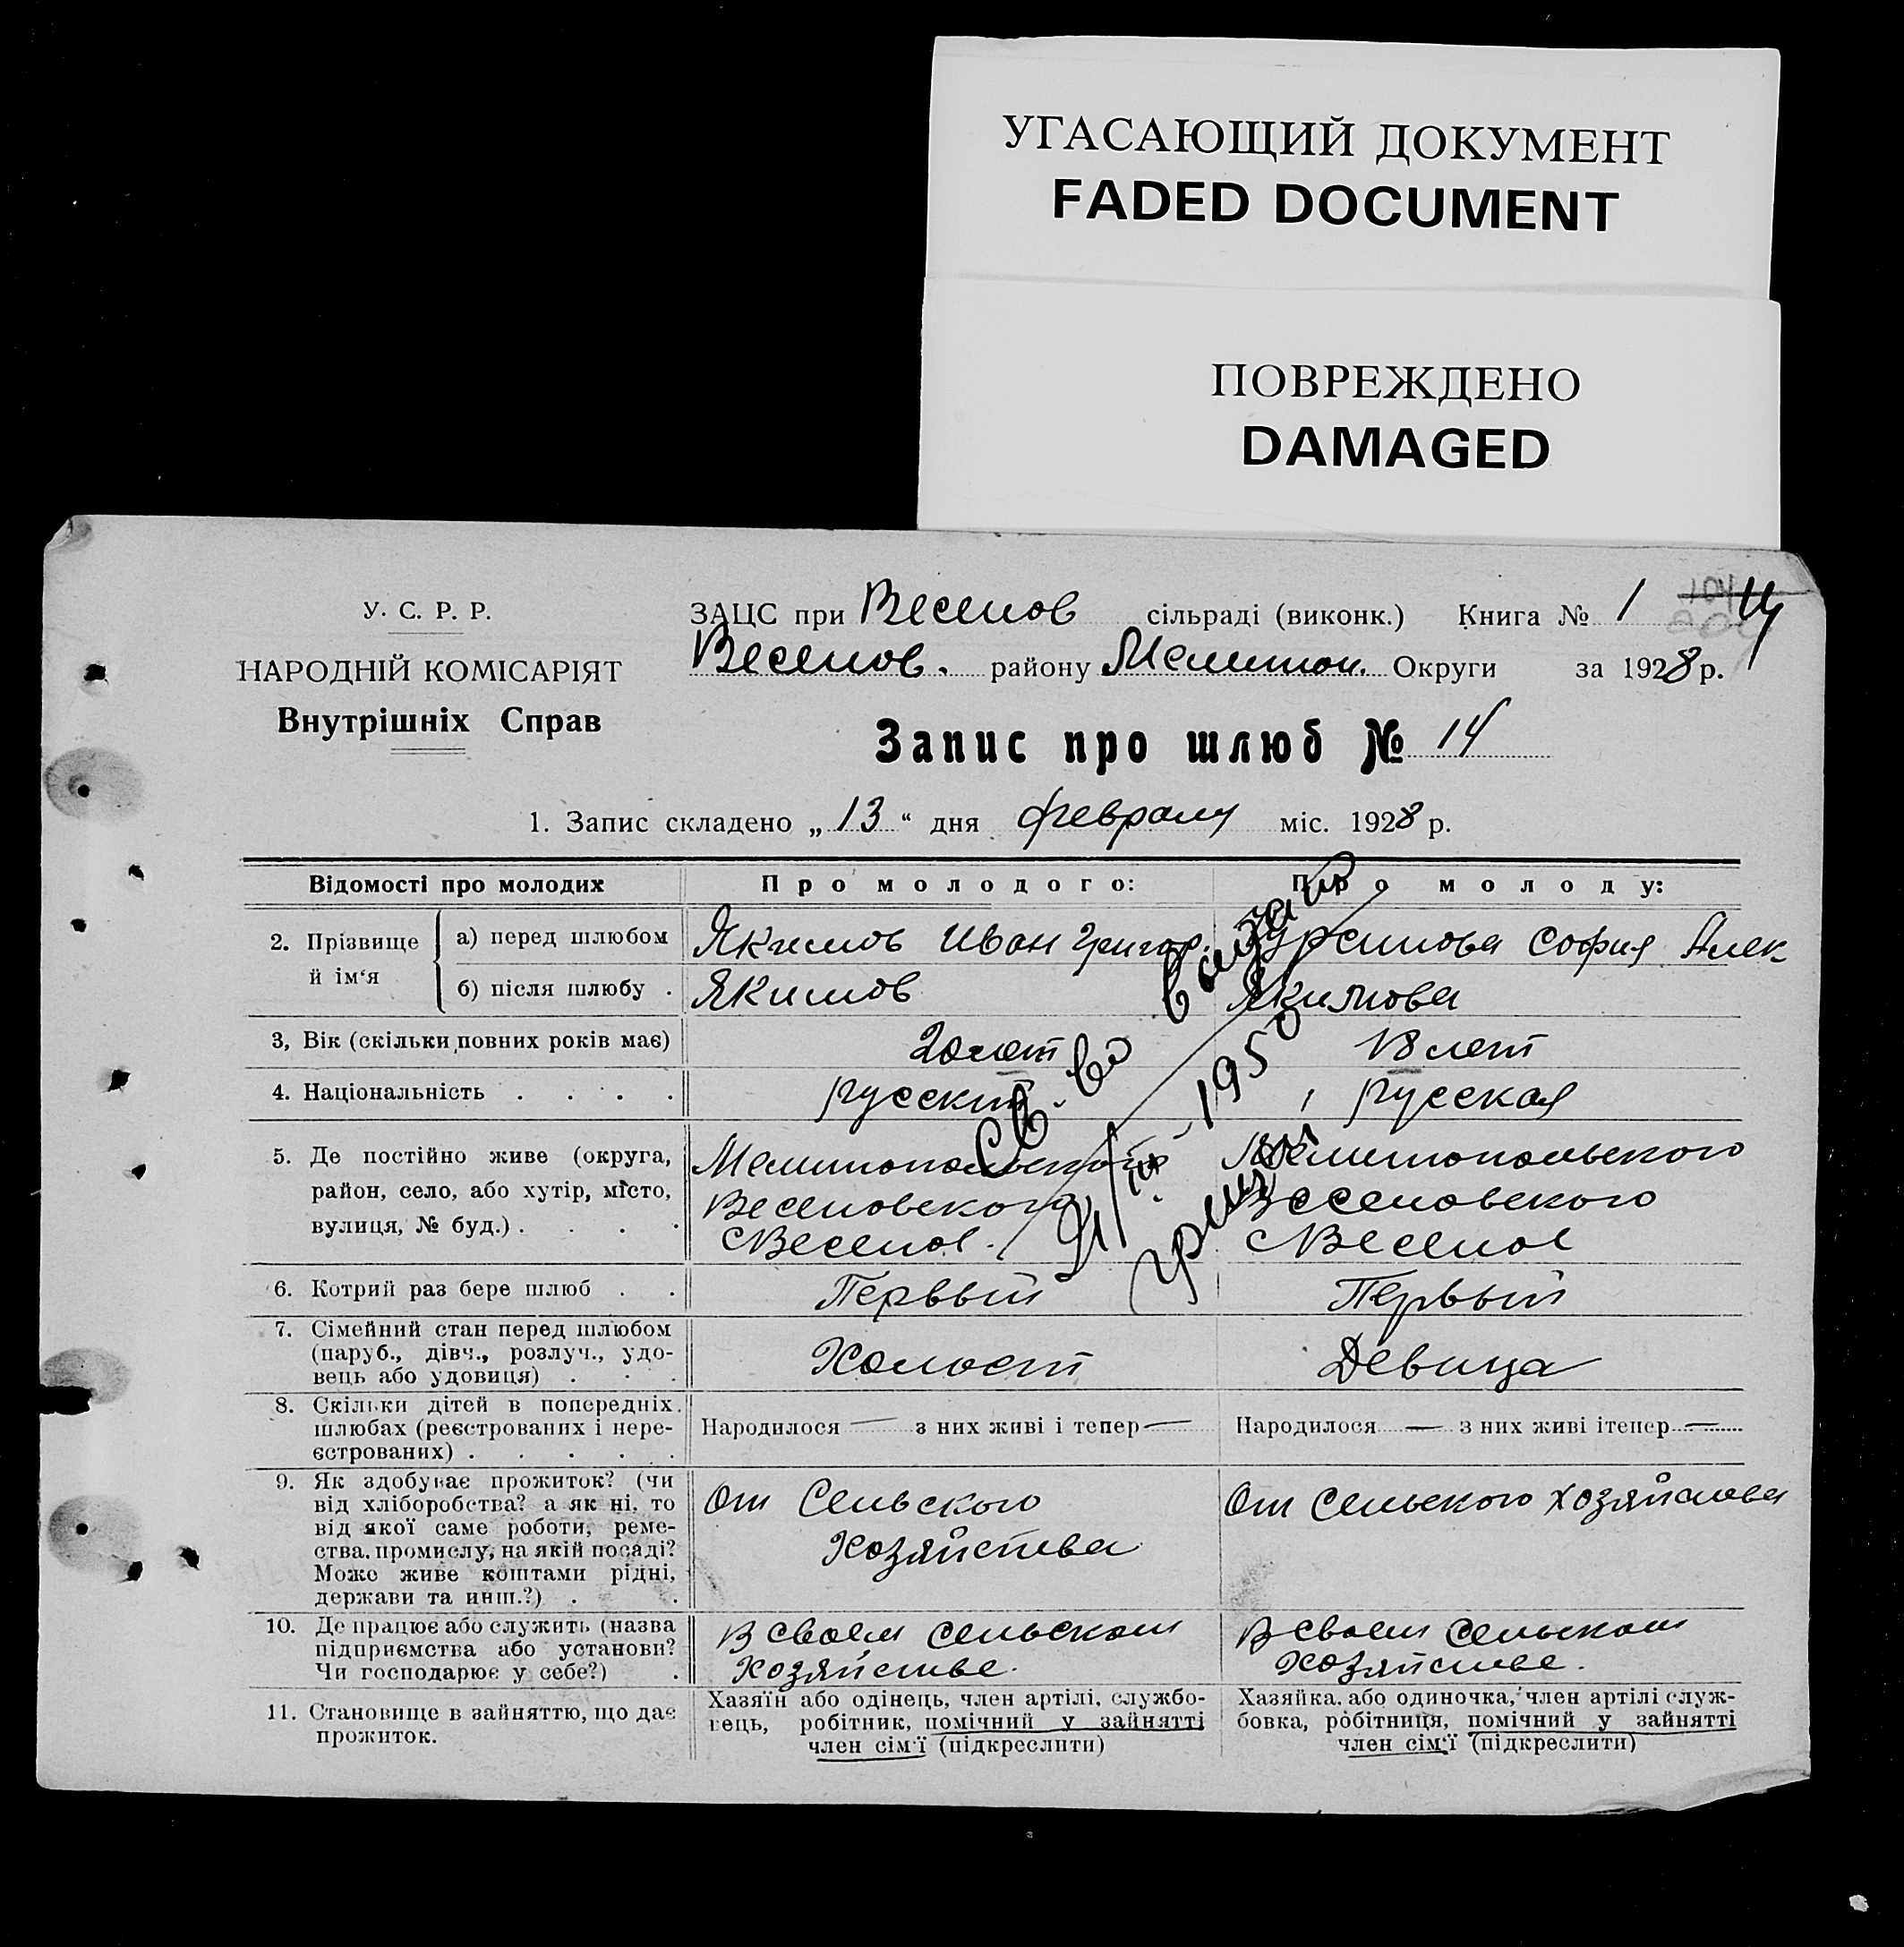 УГАСАЮЩИЙ ДОКУМЕНТ
FADED DOCUMENT
ПОВРЕЖДЕНО
DAMAGED
У. С. Р. Р.
НАРОДНІЙ КОМІСАРІЯТ
Внутрішніх Справ
ЗАЦС при Веселов сільраді (виконк.) Книга № 1 14
Веселов. району Мелитоп. Округи за 1928 р.
Запис про шлюб № 14
1. Запис складено „13“ дня февраля міс. 1928 р.
Відомості про молодих
Про молодого:
Про молоду:
2. Прізвище й ім‘я
а) перед шлюбом Якимов Иван Григор. София Алек
б) після шлюбу . Якимов Якимова
3, Вік (скільки повних років має) 20 лет 18 лет
4. Національність . . . . русский русская
5. Де постійно живе (округа, район, село, або хутір, місто, вулиця, № буд.) . . . .
Мелитопольского
Веселовского
с Веселое.
Мелитопольского
Веселовского
с Веселое
6. Котрий раз бере шлюб . . Первый Первый
7. Сімейний стан перед шлюбом
(паруб., дівч., розлуч., удо-
вець або удовиця) . . .
Холост
Девица
8. Скільки дітей в попередніх
шлюбах (реєстрованих і нере-
єстрованих) . . . . .
Народилося — з них живі і тепер —
Народилося — з них живі ітепер —
9. Як здобуває прожиток? (чи
від хліборобства? а як ні, то
від якої саме роботи, реме-
ства, промислу, на якій посаді?
Може живе коштами рідні,
держави та инш.?) . .
От Сельского
Хозяйства
От Сельского Хозяйства
10. Де працює або служить (назва
підприємства або установи?
Чи господарює у себе?) .
В своем сельском
Хозяйстве.
В своем Сельском
Хозяйстве.
11. Становище в зайняттю, що дає
прожиток.
Хазяїн або одінець, член артілі, службо-
вець, робітник, помічний у зайнятті
член сім‘ї (підкреслити)
Хазяйка, або одиночка, член артілі служ-
бовка, робітниця, помічний у зайнятті
член сім‘ї (підкреслити)
Св-во
1950